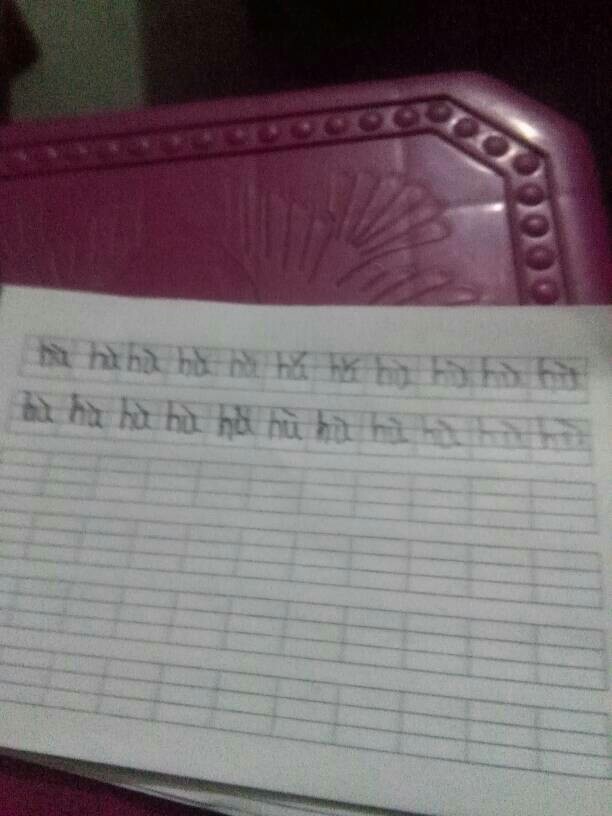 hà hà hà hà hà há há hà hà hà hà
hà hà hà hà hà hù hà hà hà